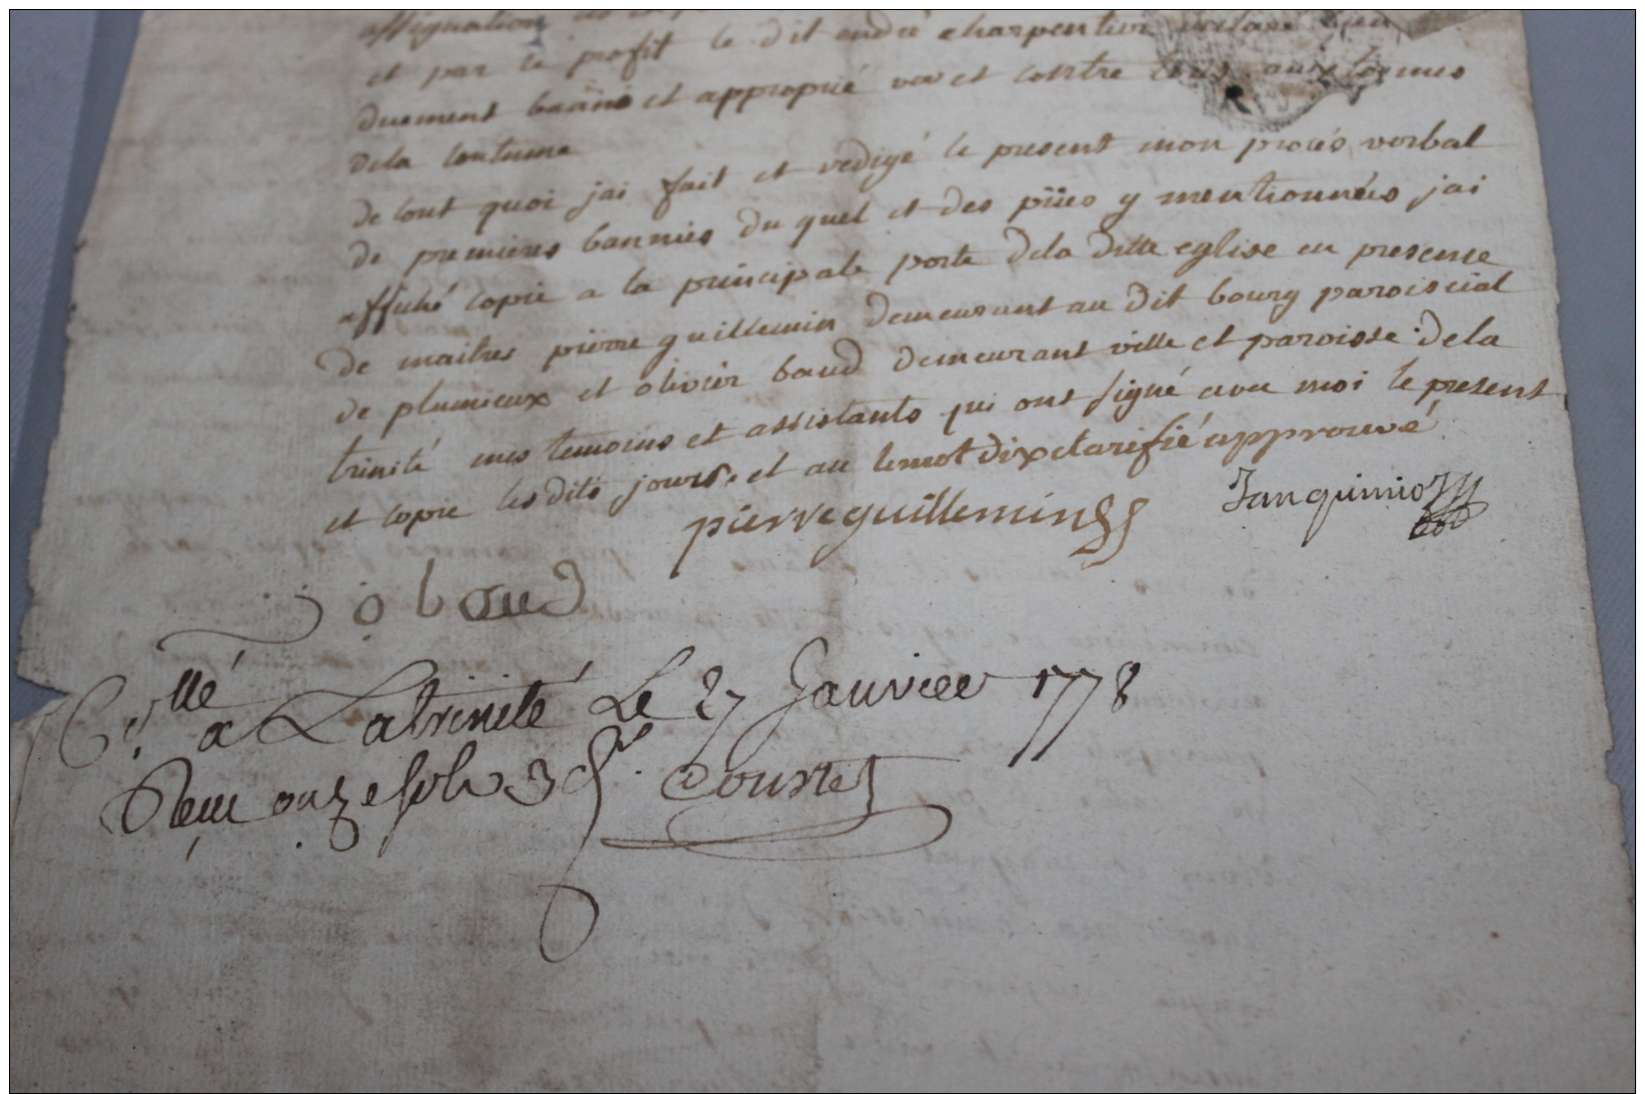 assignation
et par le profit le dit endré charpentier
duement banni et approprié vers et contre tous aux termes
dela coutume
de tout quoi jai fait et redigé le present mon procés verbal
de premieres bannies du quel et des piies y mentionnées jai
affiché copie a la principale porte dela ditte eglise en presence
de maitres pierre guillemin demeurant au dit bourg paroissial
de plumieux et olivier baud demeurant ville et paroisse dela
trinité mes temoins et assistants qui ont signé avec moi le present
et copie lesdits jours. et an lemot dix clarifié approuvé
pierre guillemin Janquinio
o baud
Crllé a Latrinité Le 27 Janvier 1778
Reçu onze sols 3 d.rs Courtel